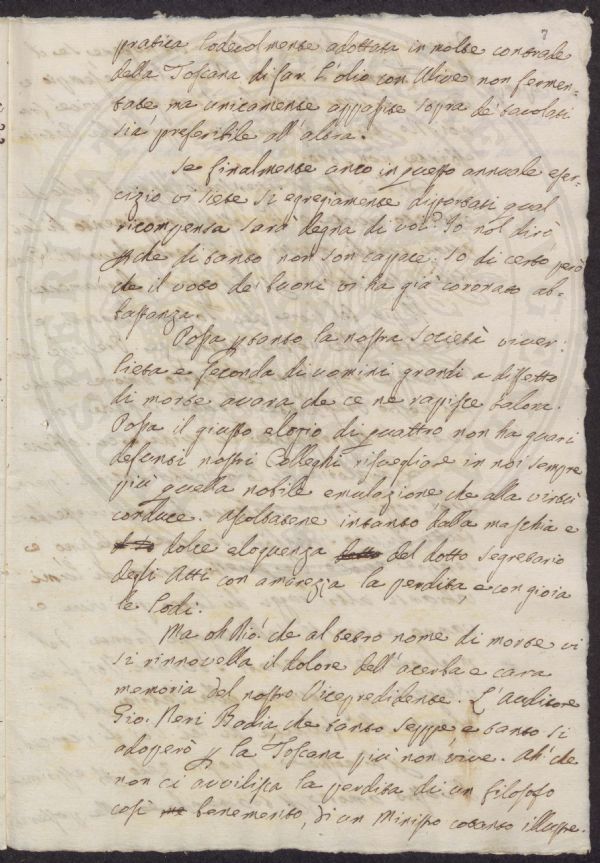 7
pratica lodevolmente adottata in molte contrade
della Toscana di far l'olio con Ulive non fermen-
tate, ma unicamente appassite sopra de' tavolati
sia preferibile all'altra.
Se finalmente anco in questo annuale eser-
cizio vi siete sì egregiamente disforzati qual
ricompensa sarà degna di voi? Io nol dirò
che di tanto non son capace. So di certo però
che il voto de' buoni vi ha già coronato ab-
bastanza.
Possa ptanto la nostra società viver
lieta e feconda di uomini grandi a dispetto
di morte avara che ce ne rapisce talora.
Possa il giusto elogio di quattro non ha guari
defunti nostri Colleghi risvegliare in noi sempre
più quella nobile emulazione che alla virtù
conduce. Ascoltatene intanto dalla maschia e
dolce eloquenza del dotto segretario
degli Atti con amarezza la perdita, e con gioia
le lodi.
Ma oh Dio! che al tetro nome di morte vi
si rinnovella il dolore dell'acerba e cara
memoria del nostro Vicepredidente. L'Auditore
Gio. Neri Badia che tanto seppe, e tanto si
adoperò p la Toscana più non vive. Ah! che
non ci avvilisca la perdita di un filosofo
così benemerito, di un Ministro cotanto illustre.